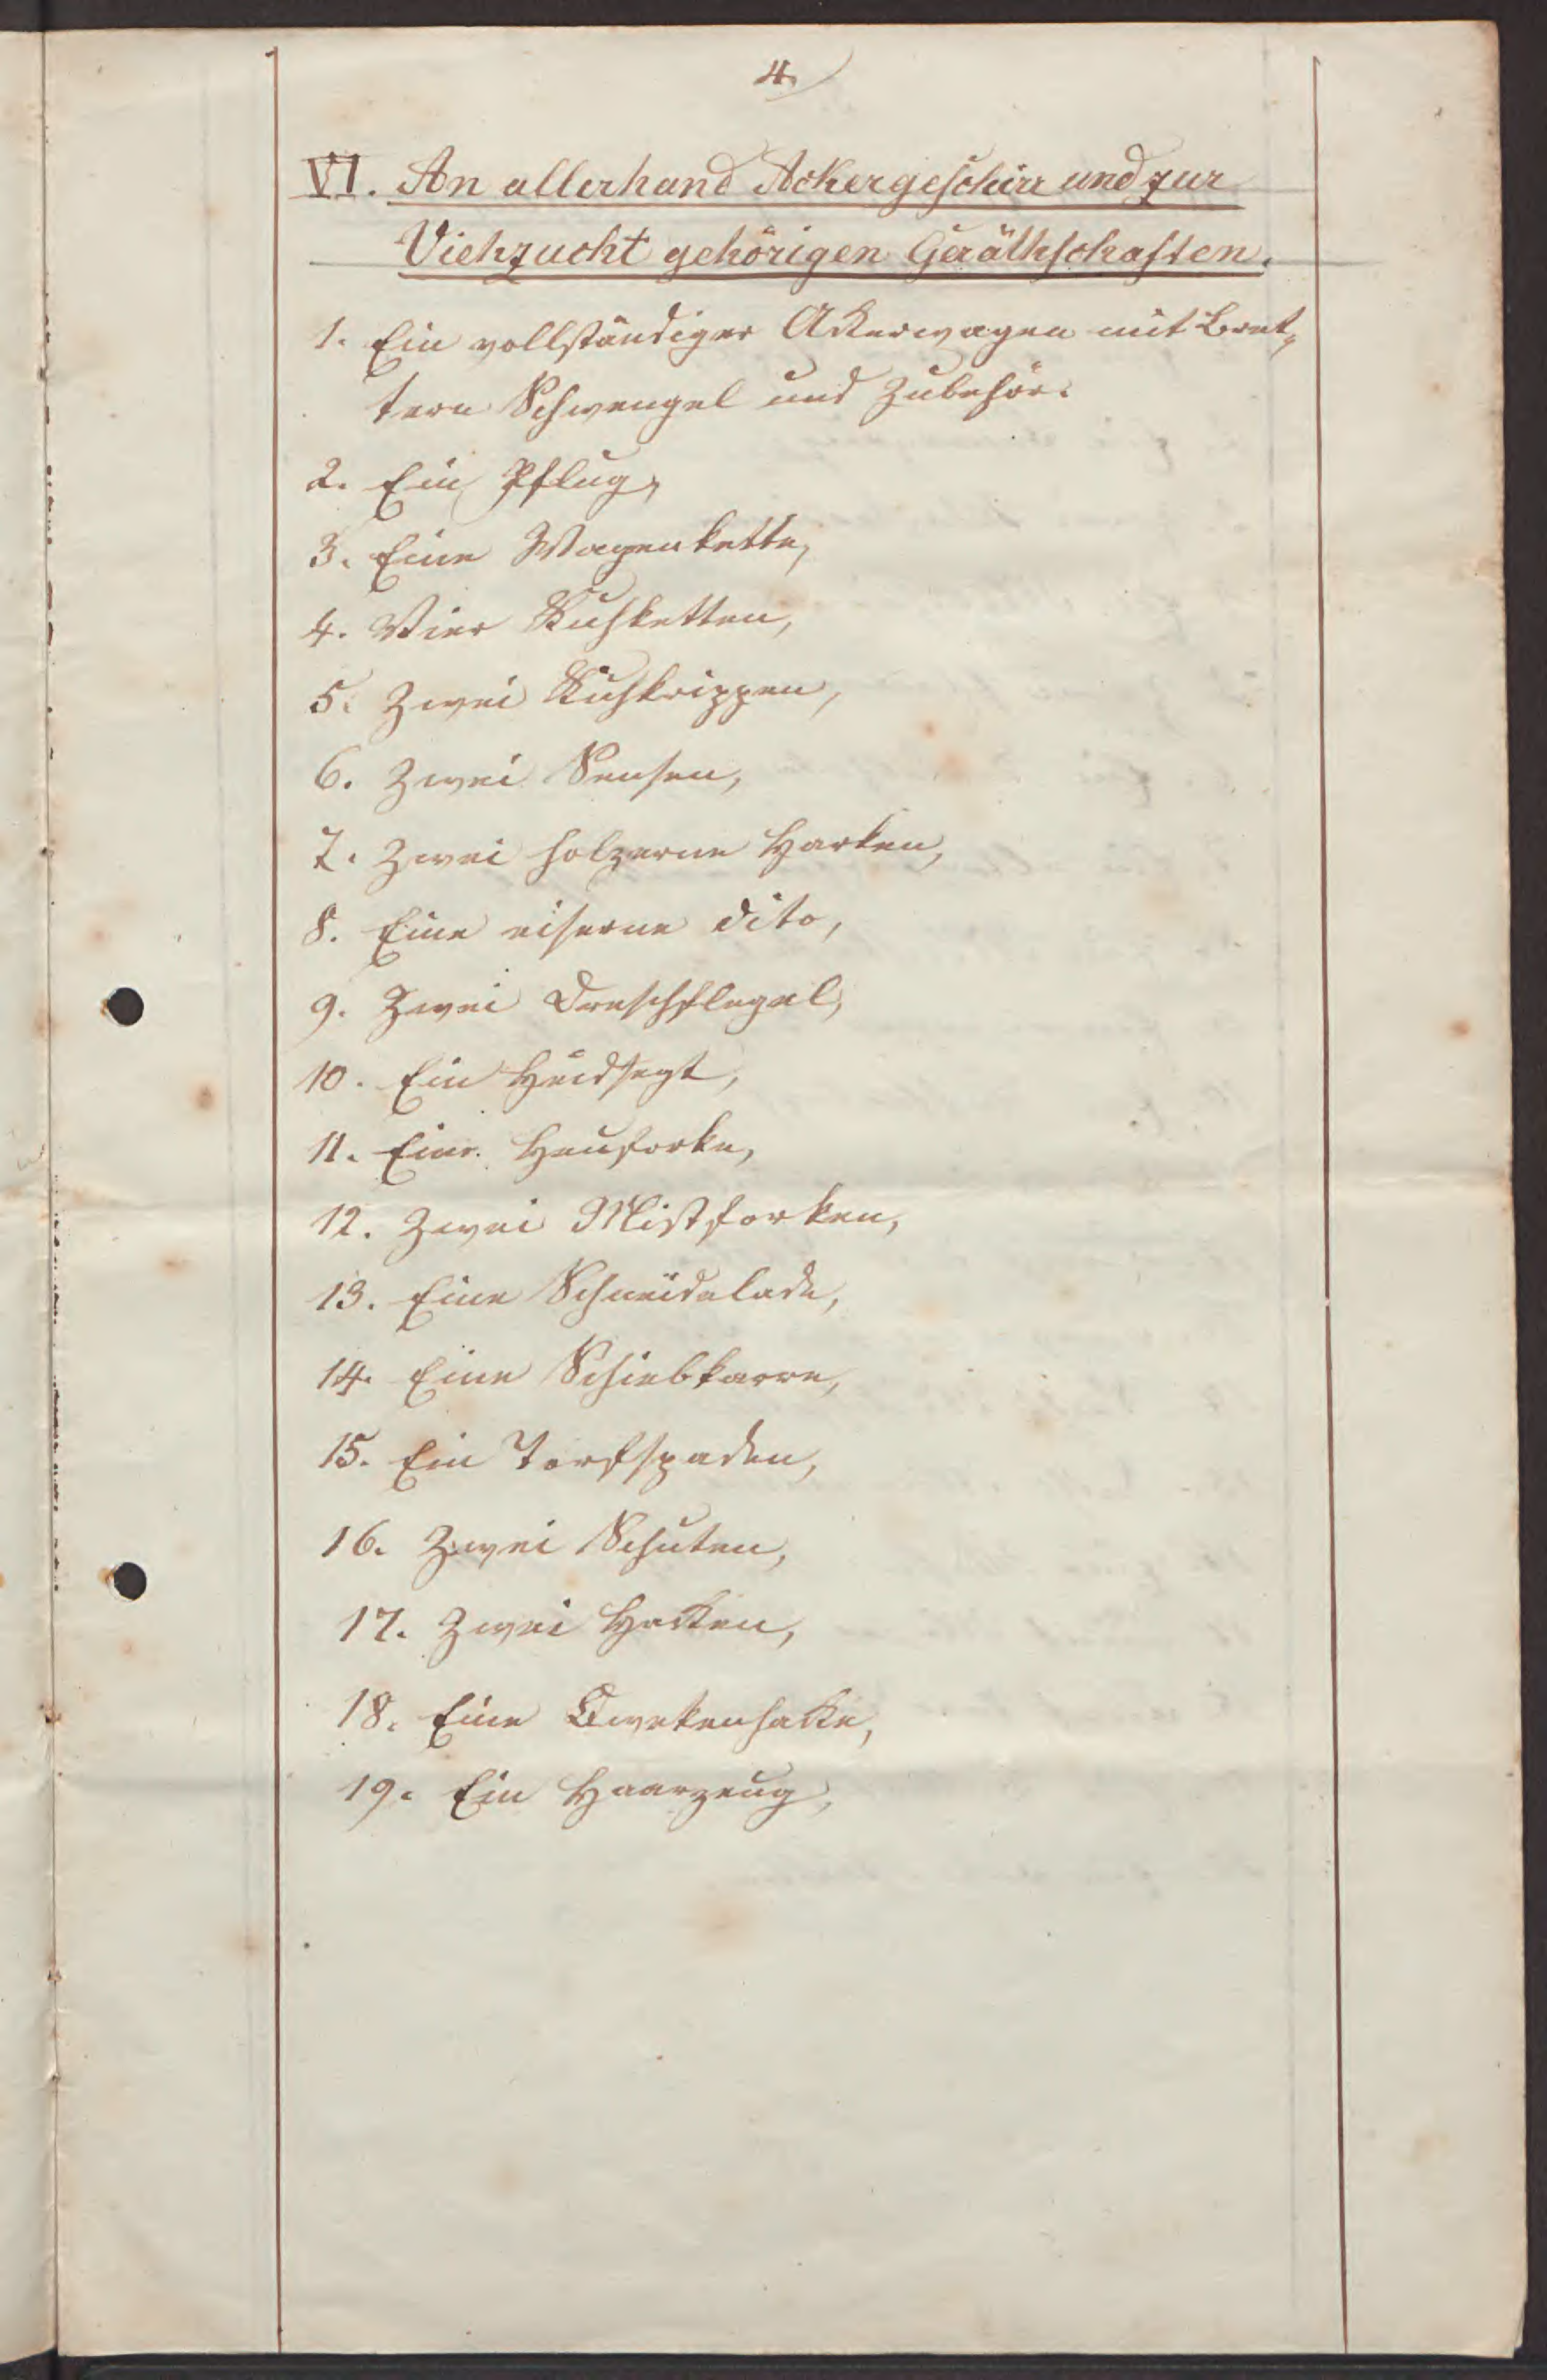 4.
VI. An allerhand Ackergeschirr und zur
Viehzucht gehörigen Geräthschaften.
1. Ein vollständiger Ackerwagen mit Bret„
tern Schwengel und Zubehör.
2. Ein Pflug,
3. Eine Wagenkette,
4. Vier Kuhketten,
5. Zwei Kuhkrippen,
6. Zwei Sensen,
7. Zwei holzerne Harken,
8. Eine eiserne dito,
9. Zwei Dreschflegel,
10. Ein
11. Eine Heuforke,
12. Zwei Mistforken,
13. Eine Schneidelade,
14. Eine Schiebkarre,
15. Ein Torfspaden,
16. Zwei Schuten,
17. Zwei Hacken,
18. Eine Qwekenhacke,
19. Ein Haarzeug,